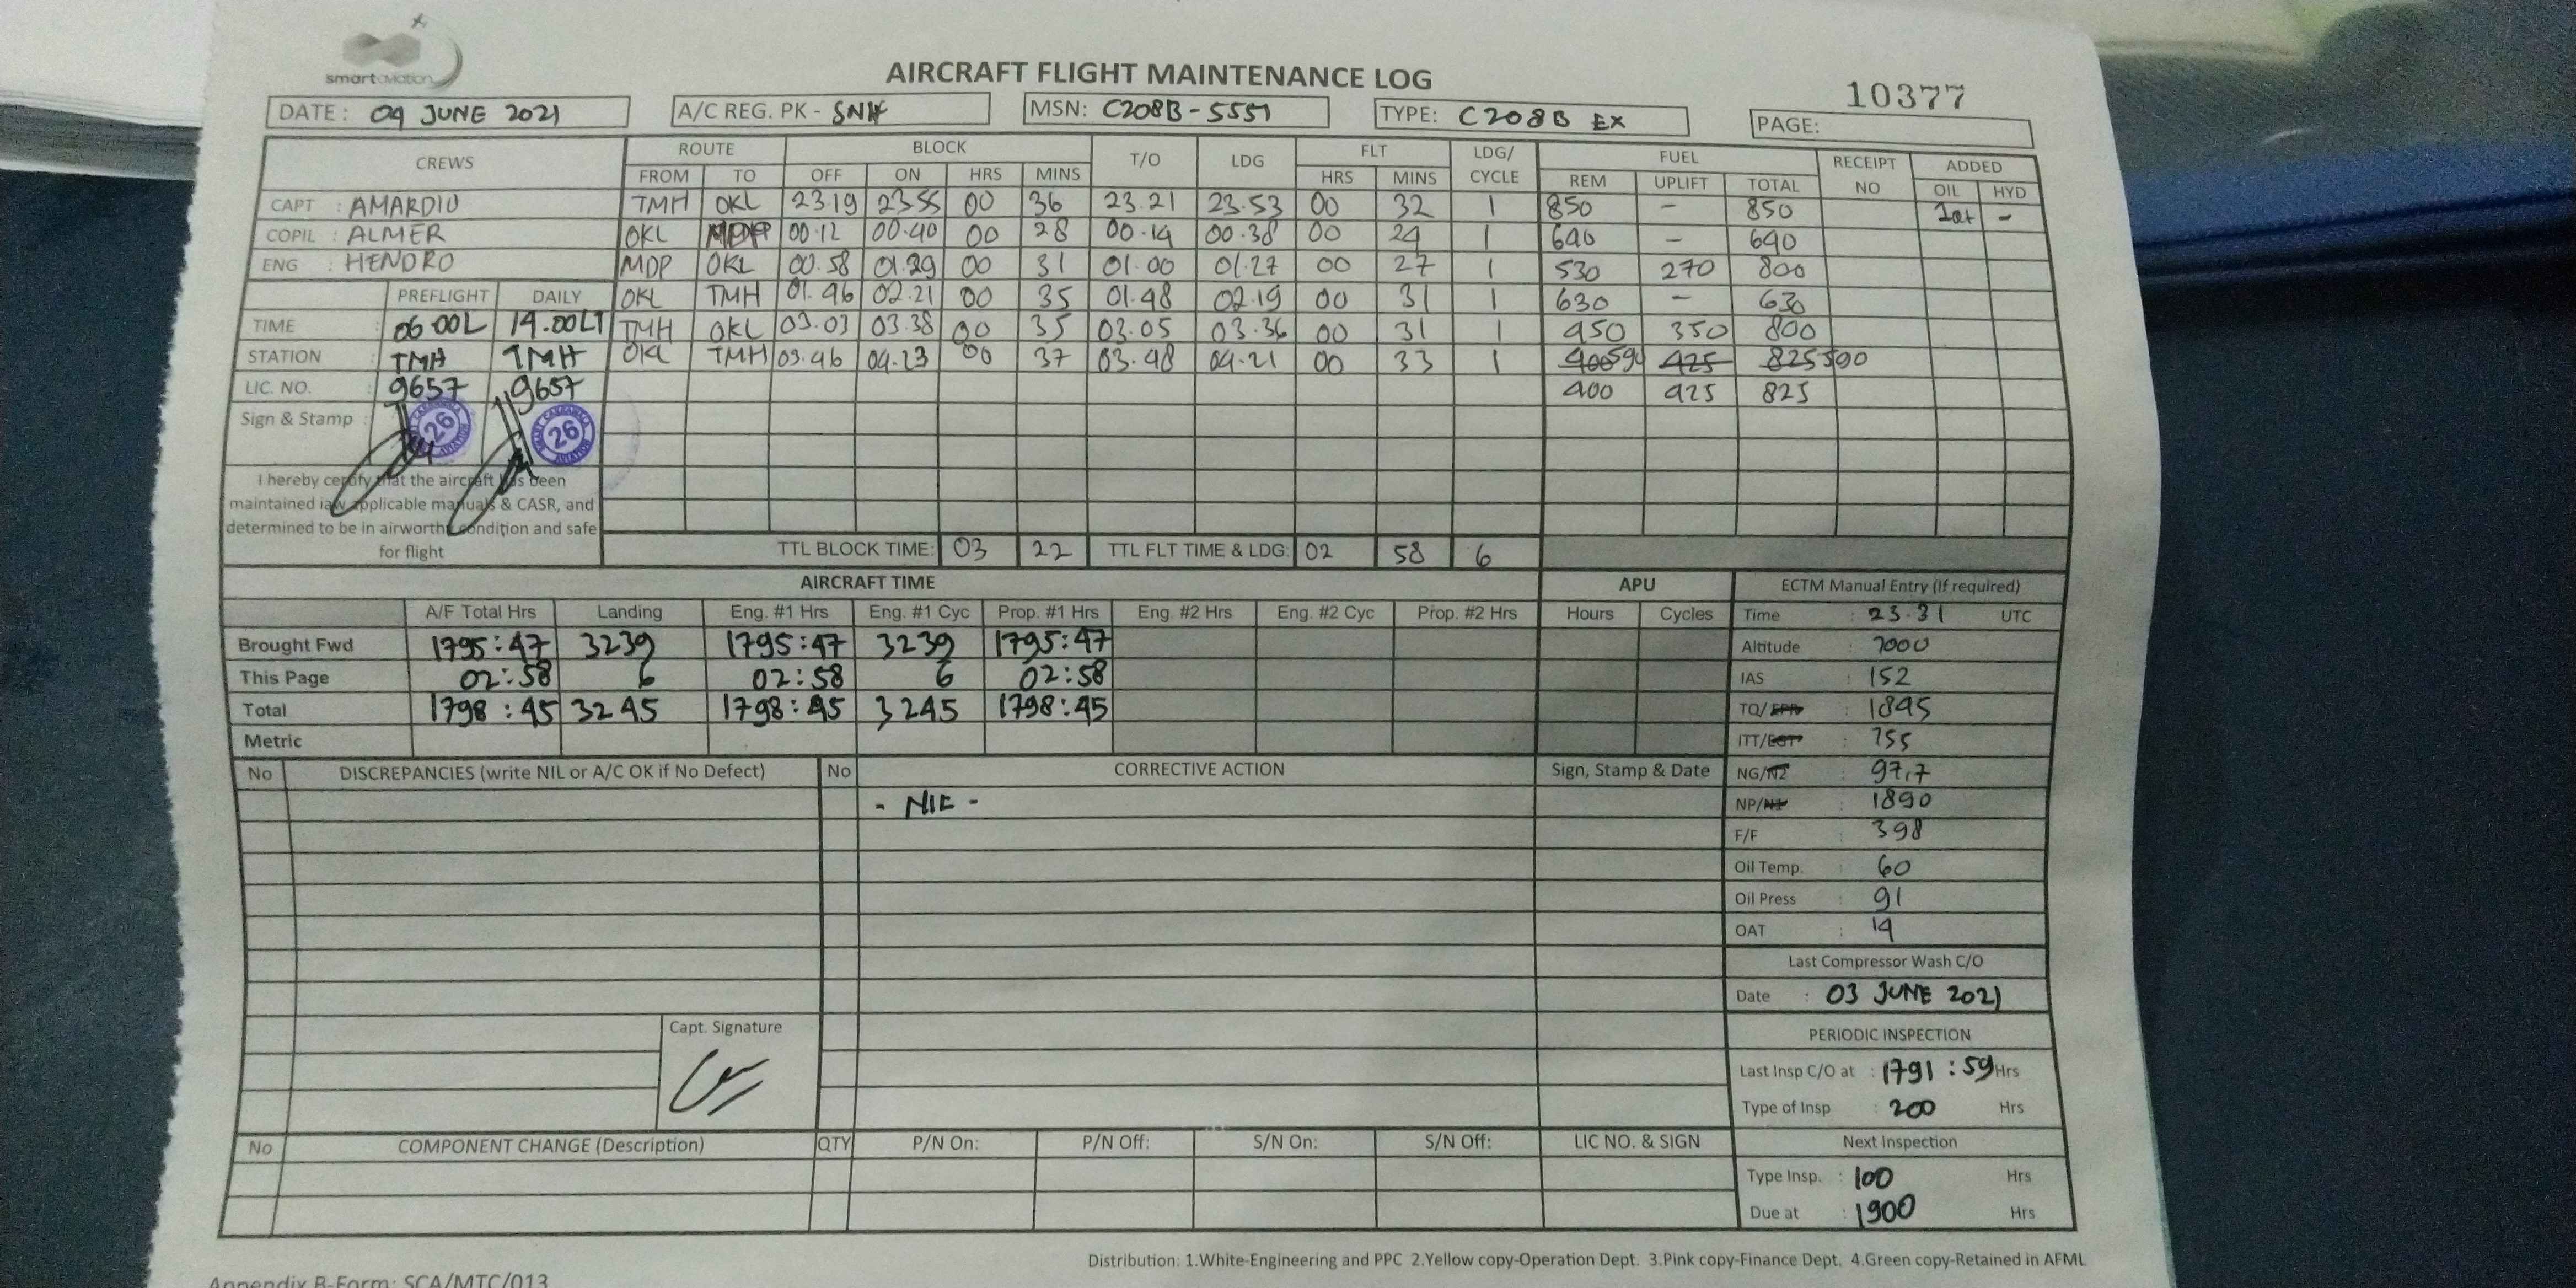 smart aviation
AIRCRAFT FLIGHT MAINTENANCE LOG
10377
DATE : 04 JUNE 2021 A/C REG. PK - SNH MSN: C208B-5551 TYPE: C208B EX PAGE:
CREWS ROUTE BLOCK T/O LDG FLT LDG/ CYCLE FUEL RECEIPT NO ADDED
FROM TO OFF ON HRS MINS HRS MINS REM UPLIFT TOTAL OIL HYD
CAPT : AMARDIO TMH OKL 23.19 23.55 00 36 23.21 23.53 00 32 1 850 - 850 1qt -
COPIL : ALMER OKL MDP 00.12 00.40 00 28 00.14 00.38 00 24 1 640 - 640
ENG : HENDRO MDP OKL 00.58 01.29 00 31 01.00 01.27 00 27 1 530 270 800
PREFLIGHT DAILY OKL TMH 01.46 02.21 00 35 01.48 02.19 00 31 1 630 - 630
TIME : 06.00L 14.00LT TMH OKL 03.03 03.38 00 35 03.05 03.36 00 31 1 450 350 800
STATION : TMH TMH OKL TMH 03.46 04.23 00 37 03.48 04.21 00 33 1 400 590 425 825 590
LIC. NO. : 9657 9657 400 425 825
Sign & Stamp :
26 26
I hereby certify that the aircraft has been
maintained iaw applicable manuals & CASR, and
determined to be in airworthy condition and safe
for flight
TTL BLOCK TIME: 03 22 TTL FLT TIME & LDG: 02 58 6
AIRCRAFT TIME APU ECTM Manual Entry (If required)
A/F Total Hrs Landing Eng. #1 Hrs Eng. #1 Cyc Prop. #1 Hrs Eng. #2 Hrs Eng. #2 Cyc Prop. #2 Hrs Hours Cycles Time : 23.31 UTC
Brought Fwd 1795:47 3239 1795:47 3239 1795:47 Altitude : 7000
This Page 02:58 6 02:58 6 02:58 IAS : 152
Total 1798:45 3245 1798:45 3245 1798:45 TQ/EPR : 1845
Metric ITT/EGT : 755
No DISCREPANCIES (write NIL or A/C OK if No Defect) No CORRECTIVE ACTION Sign, Stamp & Date NG/N2 : 97,7
- NIL - NP/N1 : 1890
F/F : 398
Oil Temp. : 60
Oil Press : 91
OAT : 14
Last Compressor Wash C/O
Date : 03 JUNE 2021
Capt. Signature
PERIODIC INSPECTION
Last Insp C/O at : 1791:59 Hrs
Type of Insp : 200 Hrs
No COMPONENT CHANGE (Description) QTY P/N On: P/N Off: S/N On: S/N Off: LIC NO. & SIGN Next Inspection
Type Insp. : 100 Hrs
Due at : 1900 Hrs
Distribution: 1.White-Engineering and PPC 2.Yellow copy-Operation Dept. 3.Pink copy-Finance Dept. 4.Green copy-Retained in AFML
Appendix B-Form: SCA/MTC/013